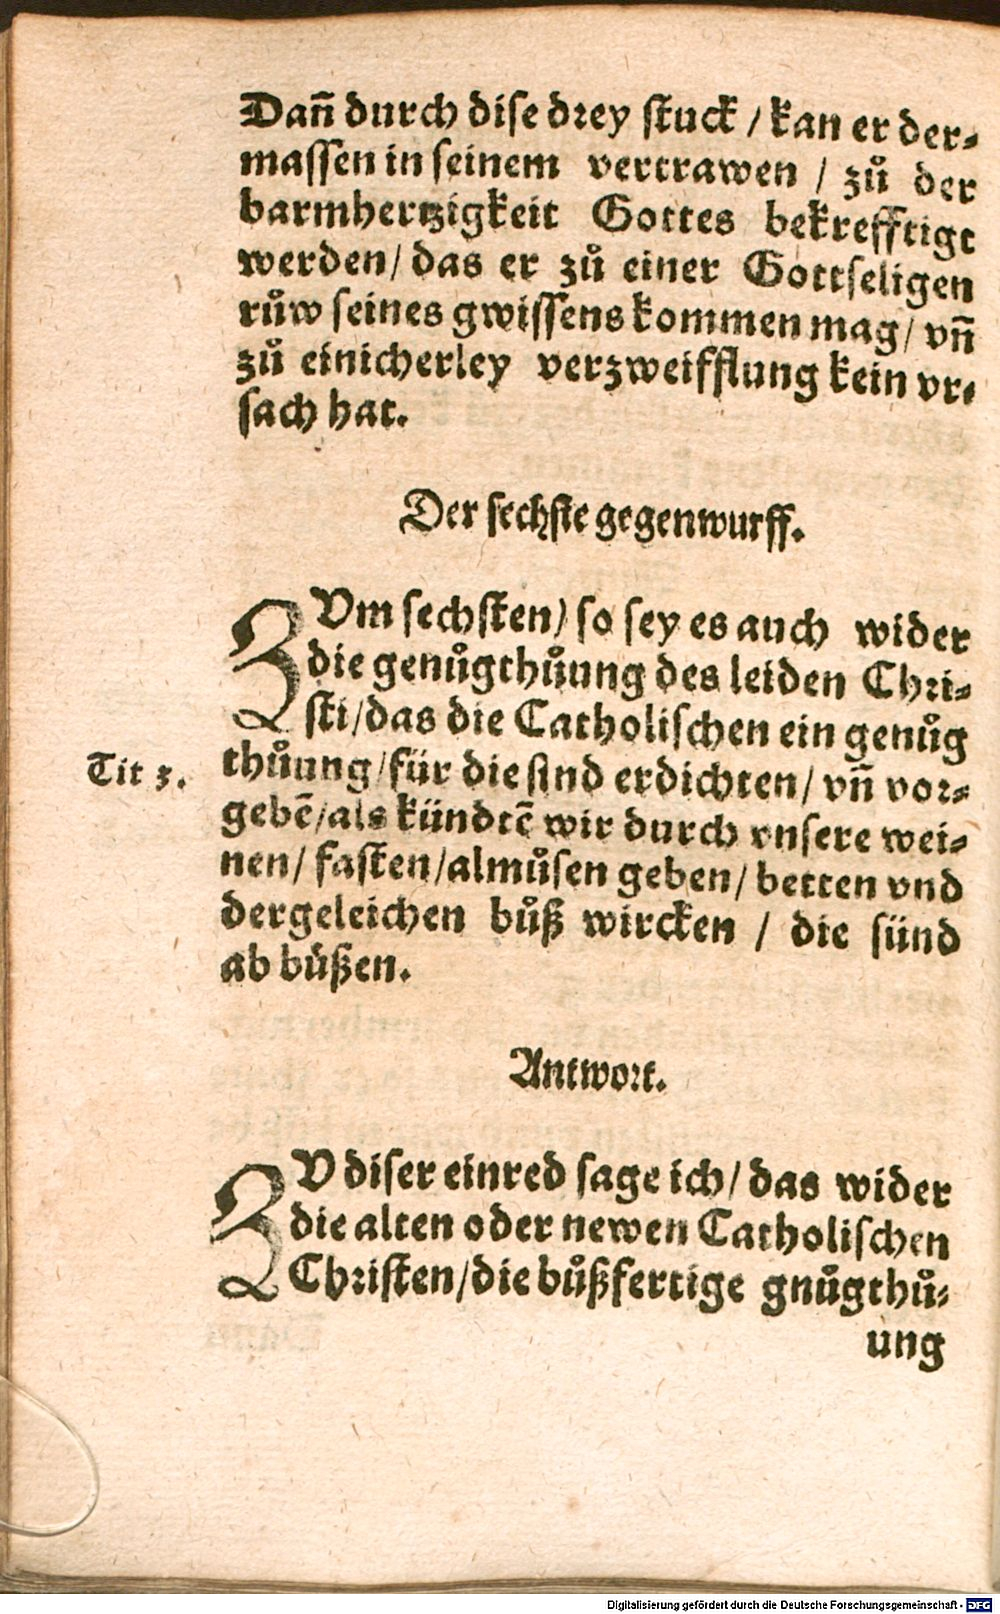 Dañ durch dise drey stuck / kan er der⸗
massen in seinem vertrawen / zů der
barmhertzigkeit Gottes bekrefftigt
werden / das er zů einer Gottseligen
růw seines gwissens kommen mag / vñ
zů einicherley verzweifflung kein vr⸗
sach hat.
Der sechste gegenwurff.
ZVm sechsten / so sey es auch wider
die genůgthůung des leiden Chri⸗
sti / das die Catholischen ein genůg
Tit 3.
thůung / für die sind erdichten / vñ vor⸗
gebẽ / als kündtẽ wir durch vnsere wei⸗
nen / fasten / almůsen geben / betten vnd
dergeleichen bůß wircken / die sünd
ab bůßen.
Antwort.
ZV diser einred sage ich / das wider
die alten oder newen Catholischen
Christen / die bůßfertige gnůgthů⸗
ung
Digitalisierung gefördert durch die Deutsche Forschungsgemeinschaft - DFG